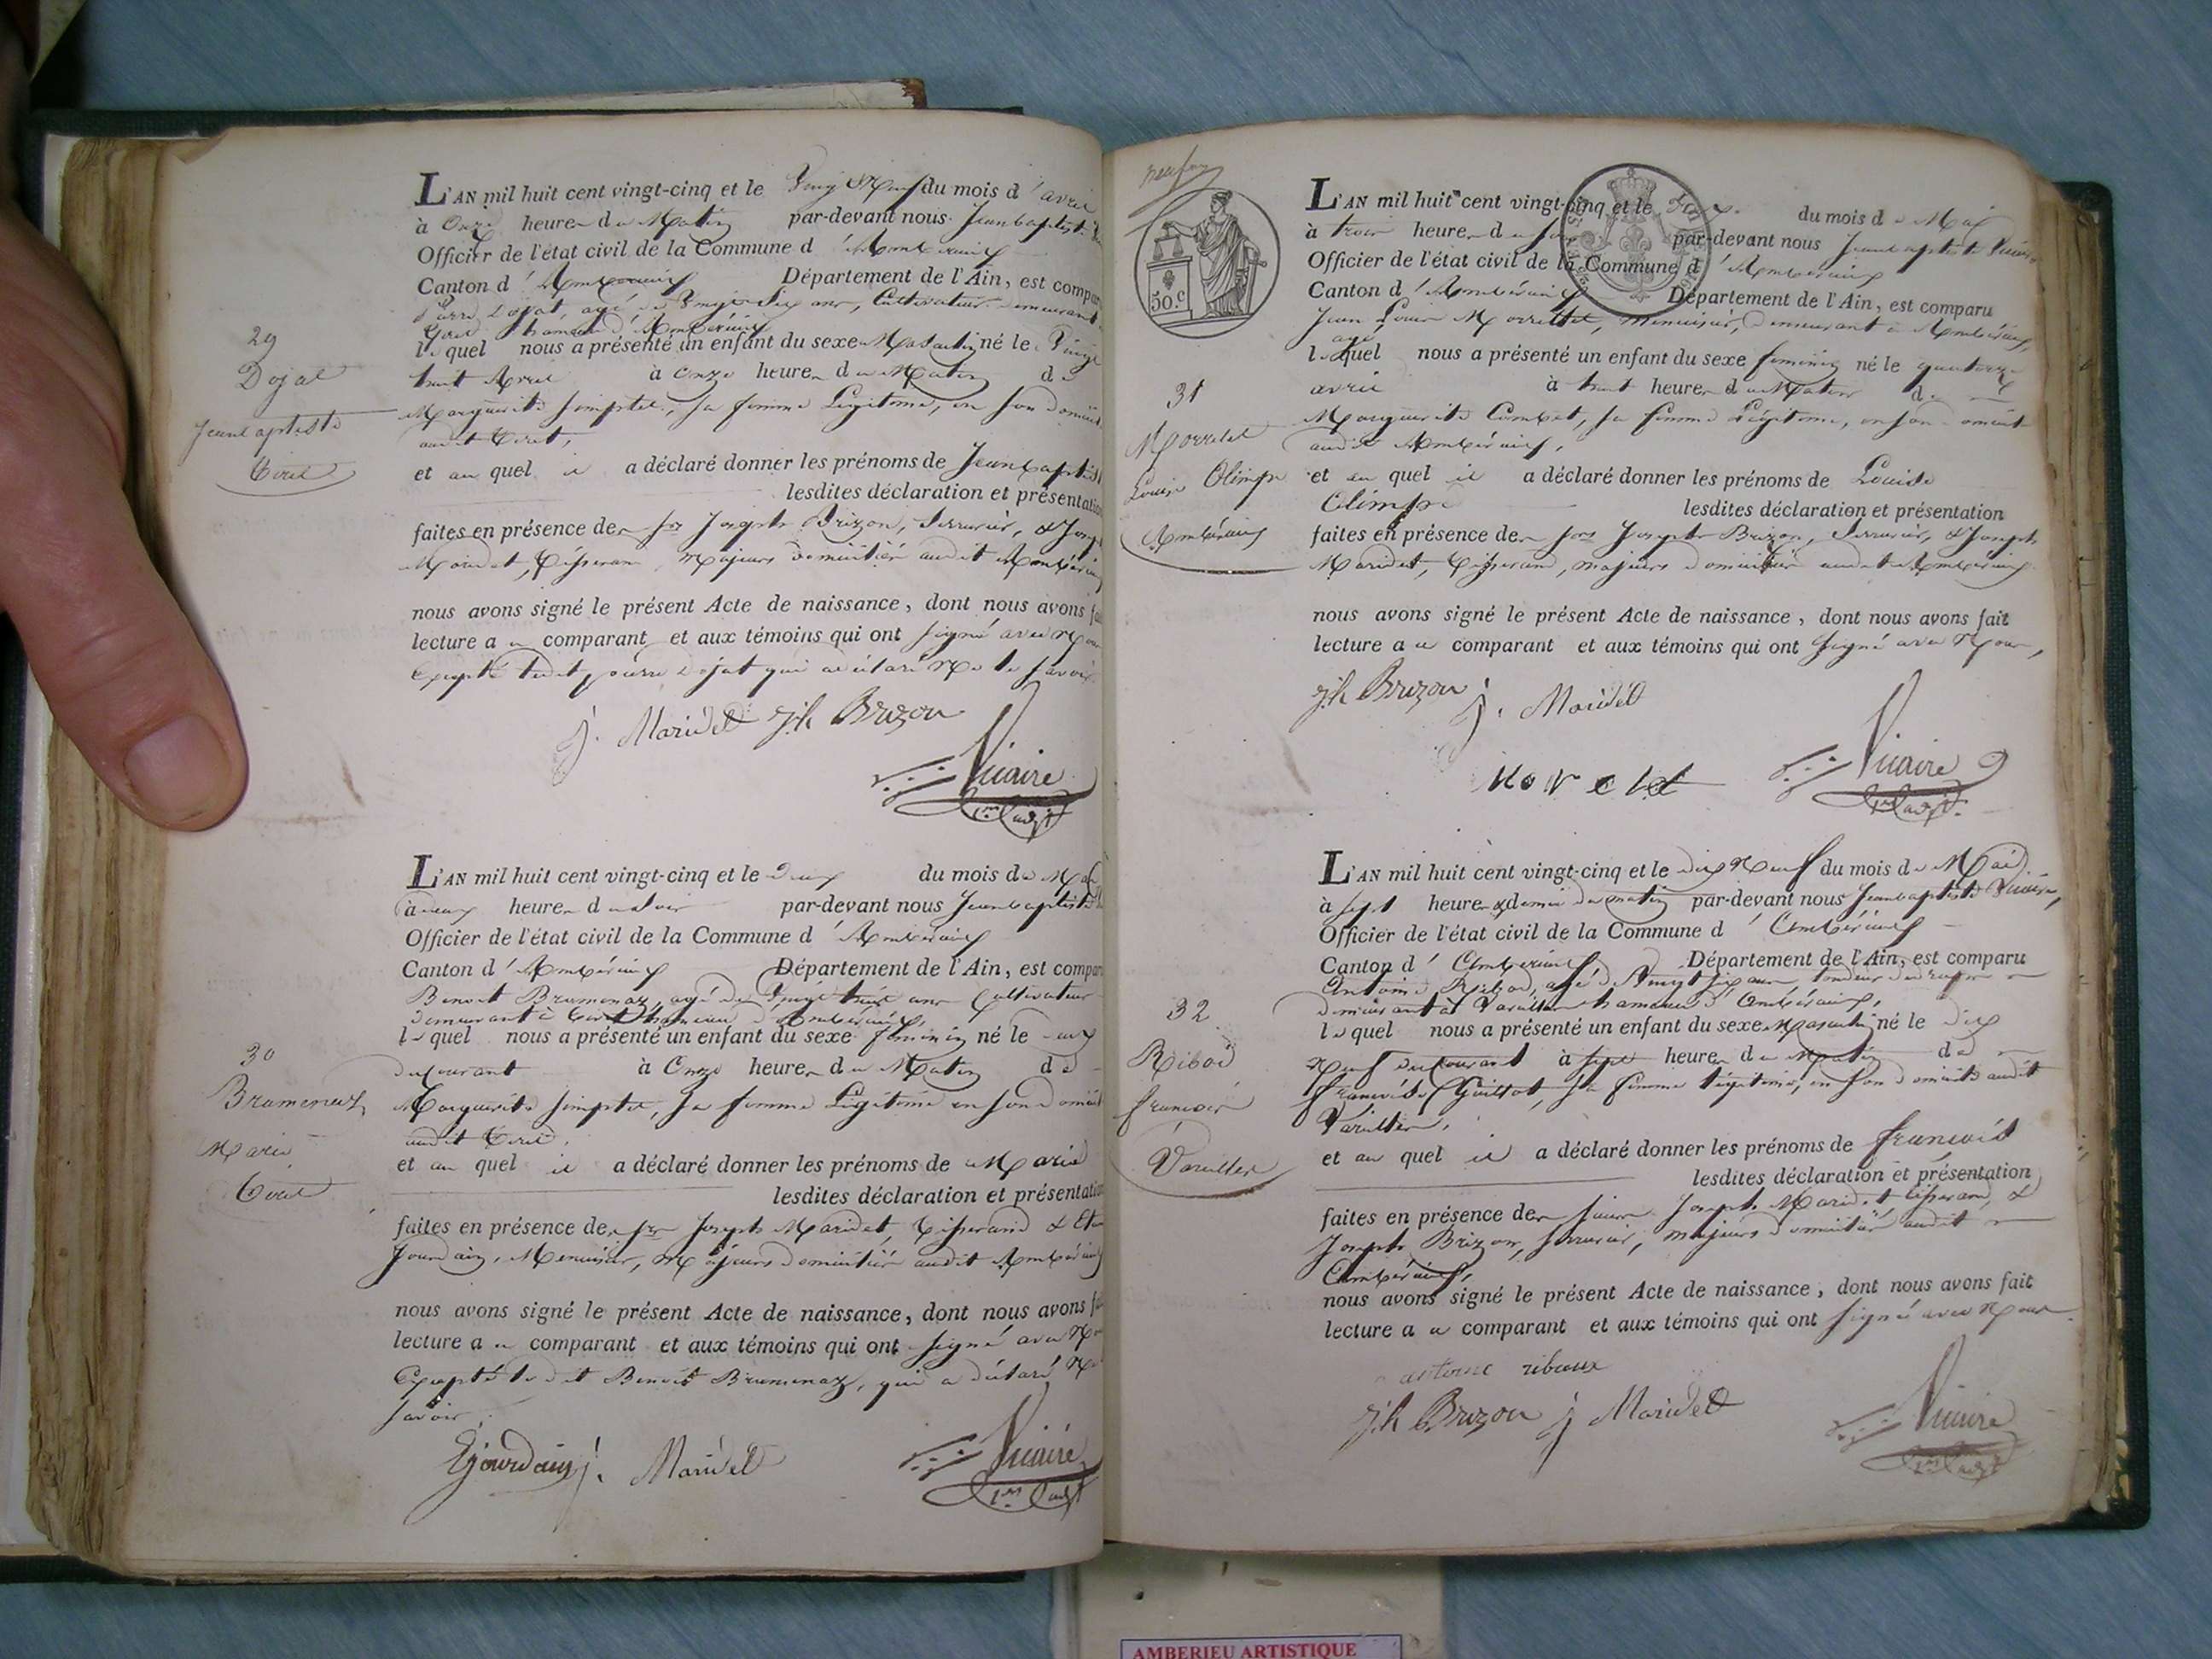 29
Dojat
Jean baptiste
Tiret
L'AN mil huit cent vingt-cinq et le Vingt Neuf du mois d'avril
à Onze heures du Matin par-devant nous Jean baptiste
Officier de l'état civil de la Commune d'Ambérieux
Canton d'Ambérieux Département de l'Ain, est compar
Pierre Dojat, agé de Vingt Six ans, Cultivateur demeurant
Tiret hameau d'Ambérieux
lequel nous a présenté un enfant du sexe Masculin né le Vingt
huit Avril à onze heures du Matin de
Marguerite Simptet, sa femme Légitime, en son domicile
audit Tiret,
et au quel il a déclaré donner les prénoms de Jean baptiste
lesdites déclaration et présentation
faites en présence des Srs Joseph Brizon, Serrurier, & Joseph
Maridet, Tisserand, Majeurs domiciliés audit Ambérieux
nous avons signé le présent Acte de naissance, dont nous avons fai
lecture au comparant et aux témoins qui ont signé avec Nous
Excepté ledit pierre Dojat qui a déclaré Ne le savoir.
j. Maridet jh Brizon
Vicaire
30
Bramenaz
Marie
Tiret
L'AN mil huit cent vingt-cinq et le Deux du mois de Mai
à deux heures du soir par-devant nous Jean baptiste
Officier de l'état civil de la Commune d'Ambérieux
Canton d'Ambérieux Département de l'Ain, est compar
Benoit Bramenaz, agé de Vingt huit ans Cultivateur
demeurant à Tiret hameau d'Ambérieux,
lequel nous a présenté un enfant du sexe féminin né le deux
du courant à Onze heures du Matin de
Marguerite Simptet, sa femme Légitime en son domicile
audit Tiret,
et au quel il a déclaré donner les prénoms de Marie
lesdites déclaration et présentation
faites en présence des Srs Joseph Maridet, Tisserand & Etne
Jourdain, Menuisier, Majeurs domiciliés audit Ambérieux
nous avons signé le présent Acte de naissance, dont nous avons fai
lecture au comparant et aux témoins qui ont signé avec Nous
Excepté ledit Benoit Bramenaz, qui a déclaré Ne
savoir.
Ejourdain j. Maridet
Vicaire
50.c
31
Morrelet
Louise Olimpe
Ambérieux
L'AN mil huit cent vingt-cinq et le Deux du mois de Mai
à trois heures du soir par-devant nous Jean baptiste Vicaire
Officier de l'état civil de la Commune d'Ambérieux
Canton d'Ambérieux Département de l'Ain, est comparu
Jean Louis Morrelet, Menuisier, demeurant à Ambérieux,
lequel nous a présenté un enfant du sexe féminin né le quatorze
avril à huit heures du Matin de
Marguerite Combet, sa femme Légitime, en son domicile
audit Ambérieux,
et au quel il a déclaré donner les prénoms de Louise
Olimpe lesdites déclaration et présentation
faites en présence des Srs Joseph Brizon, Serrurier, & Joseph
Maridet, Tisserand, majeurs domiciliés audit Ambérieux
nous avons signé le présent Acte de naissance, dont nous avons fait
lecture au comparant et aux témoins qui ont signé avec Nous,
jh Brizon j. Maridet
Morelet Vicaire
32
Ribod
françois
Vareilles
L'AN mil huit cent vingt-cinq et le dix Neuf du mois de Mai
à sept heures & demie du matin par-devant nous Jean baptiste Vicaire,
Officier de l'état civil de la Commune d'Ambérieux
Canton d'Ambérieux Département de l'Ain, est comparu
Antoine Ribod, agé de Vingt six ans,
demeurant à Vareilles hameau d'Ambérieux,
lequel nous a présenté un enfant du sexe Masculin né le dix
Neuf du Courant à sept heures du Matin de
françoise Guillot, sa femme légitime, en son domicile audit
Vareilles,
et au quel il a déclaré donner les prénoms de françois
lesdites déclaration et présentation
faites en présence des sieurs Joseph Maridet, tisserand, &
Joseph Brizon, serrurier, majeurs domiciliés audit
Ambérieux,
nous avons signé le présent Acte de naissance, dont nous avons fait
lecture au comparant et aux témoins qui ont signé avec Nous
antoine riboux
jh Brizon j Maridet
Vicaire
AMBERIEU ARTISTIQUE